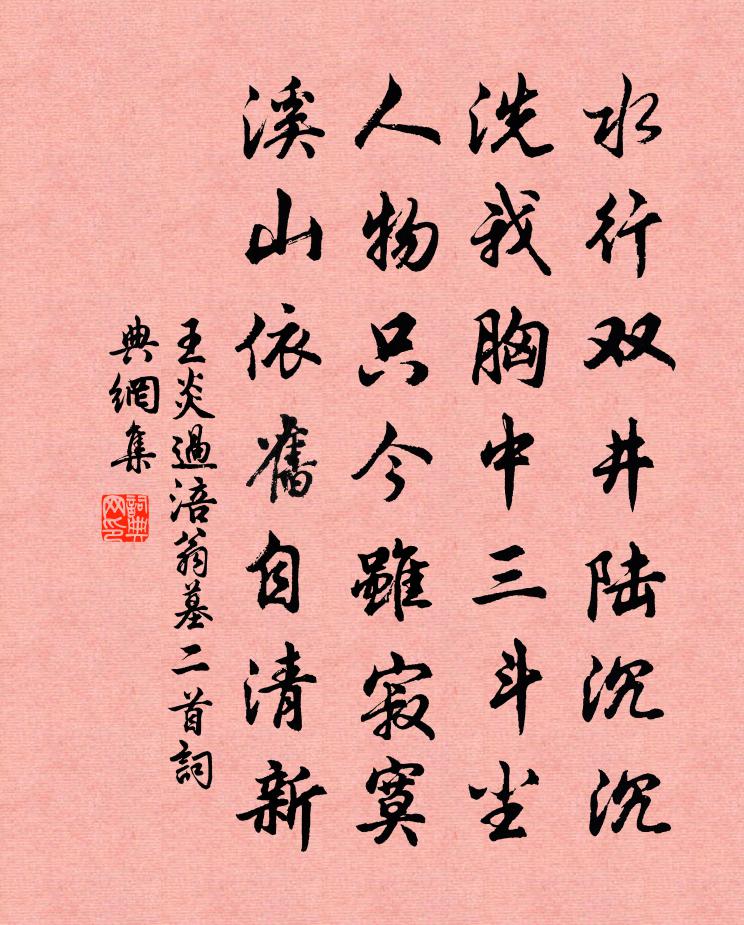 水行双井陆沉沉
洗我胸中三斗尘
人物只今雖寂寞
溪山依舊自清新
王炎過涪翁墓二首詞
典網集
詞典网印